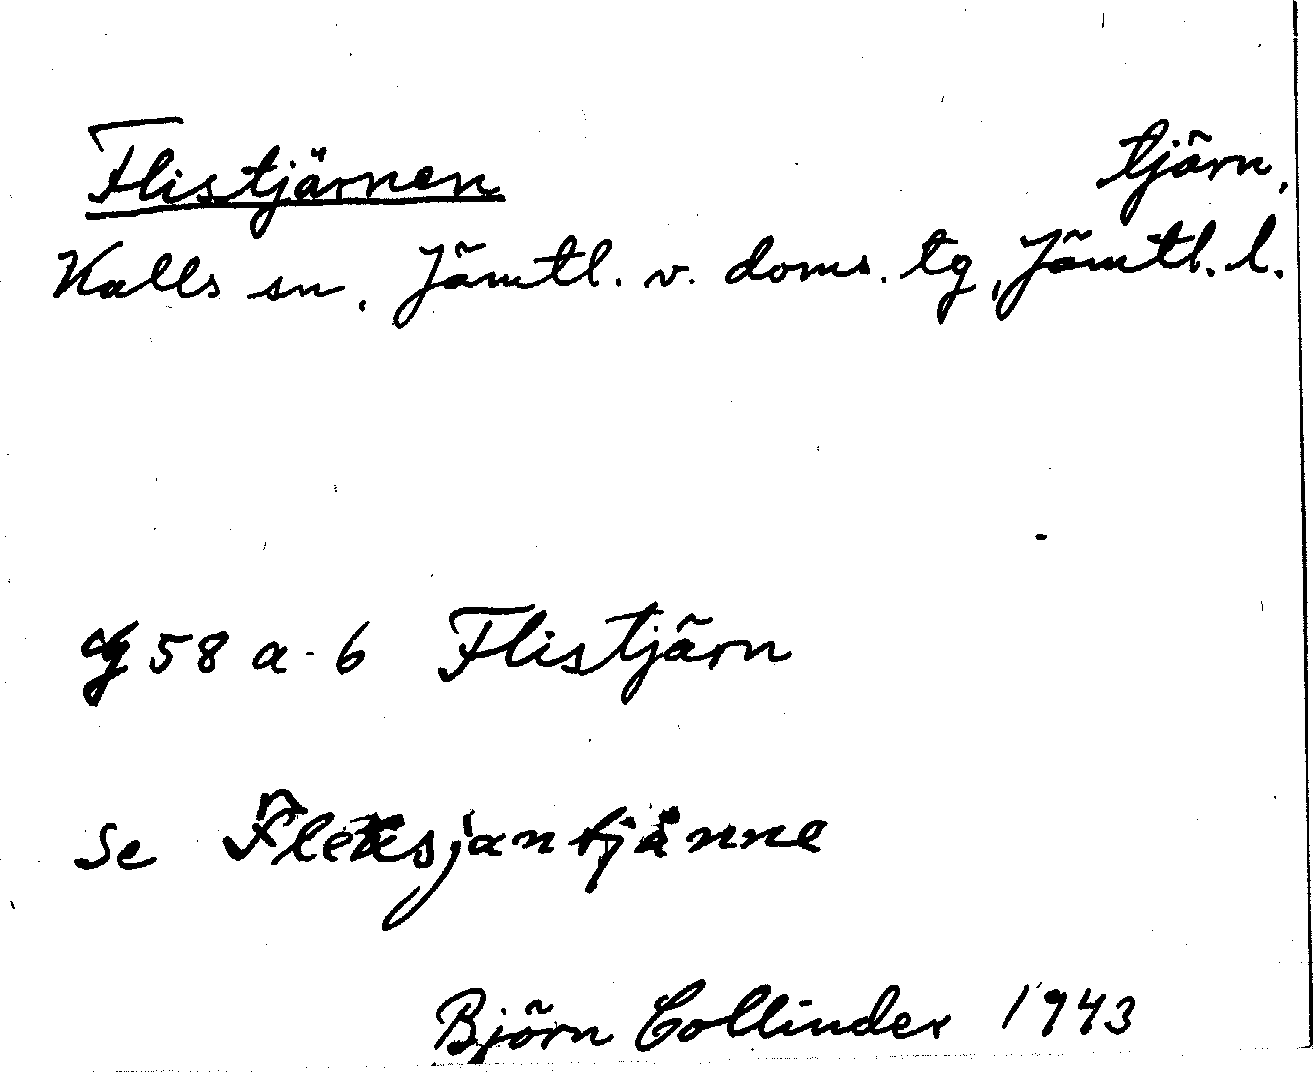 Flistjärnen tjärn,
Kalls sn, Jämtl. v. doms. tg, Jämtl. l.
58 a-b Flistjärn
Se
Björn Collinder 1943